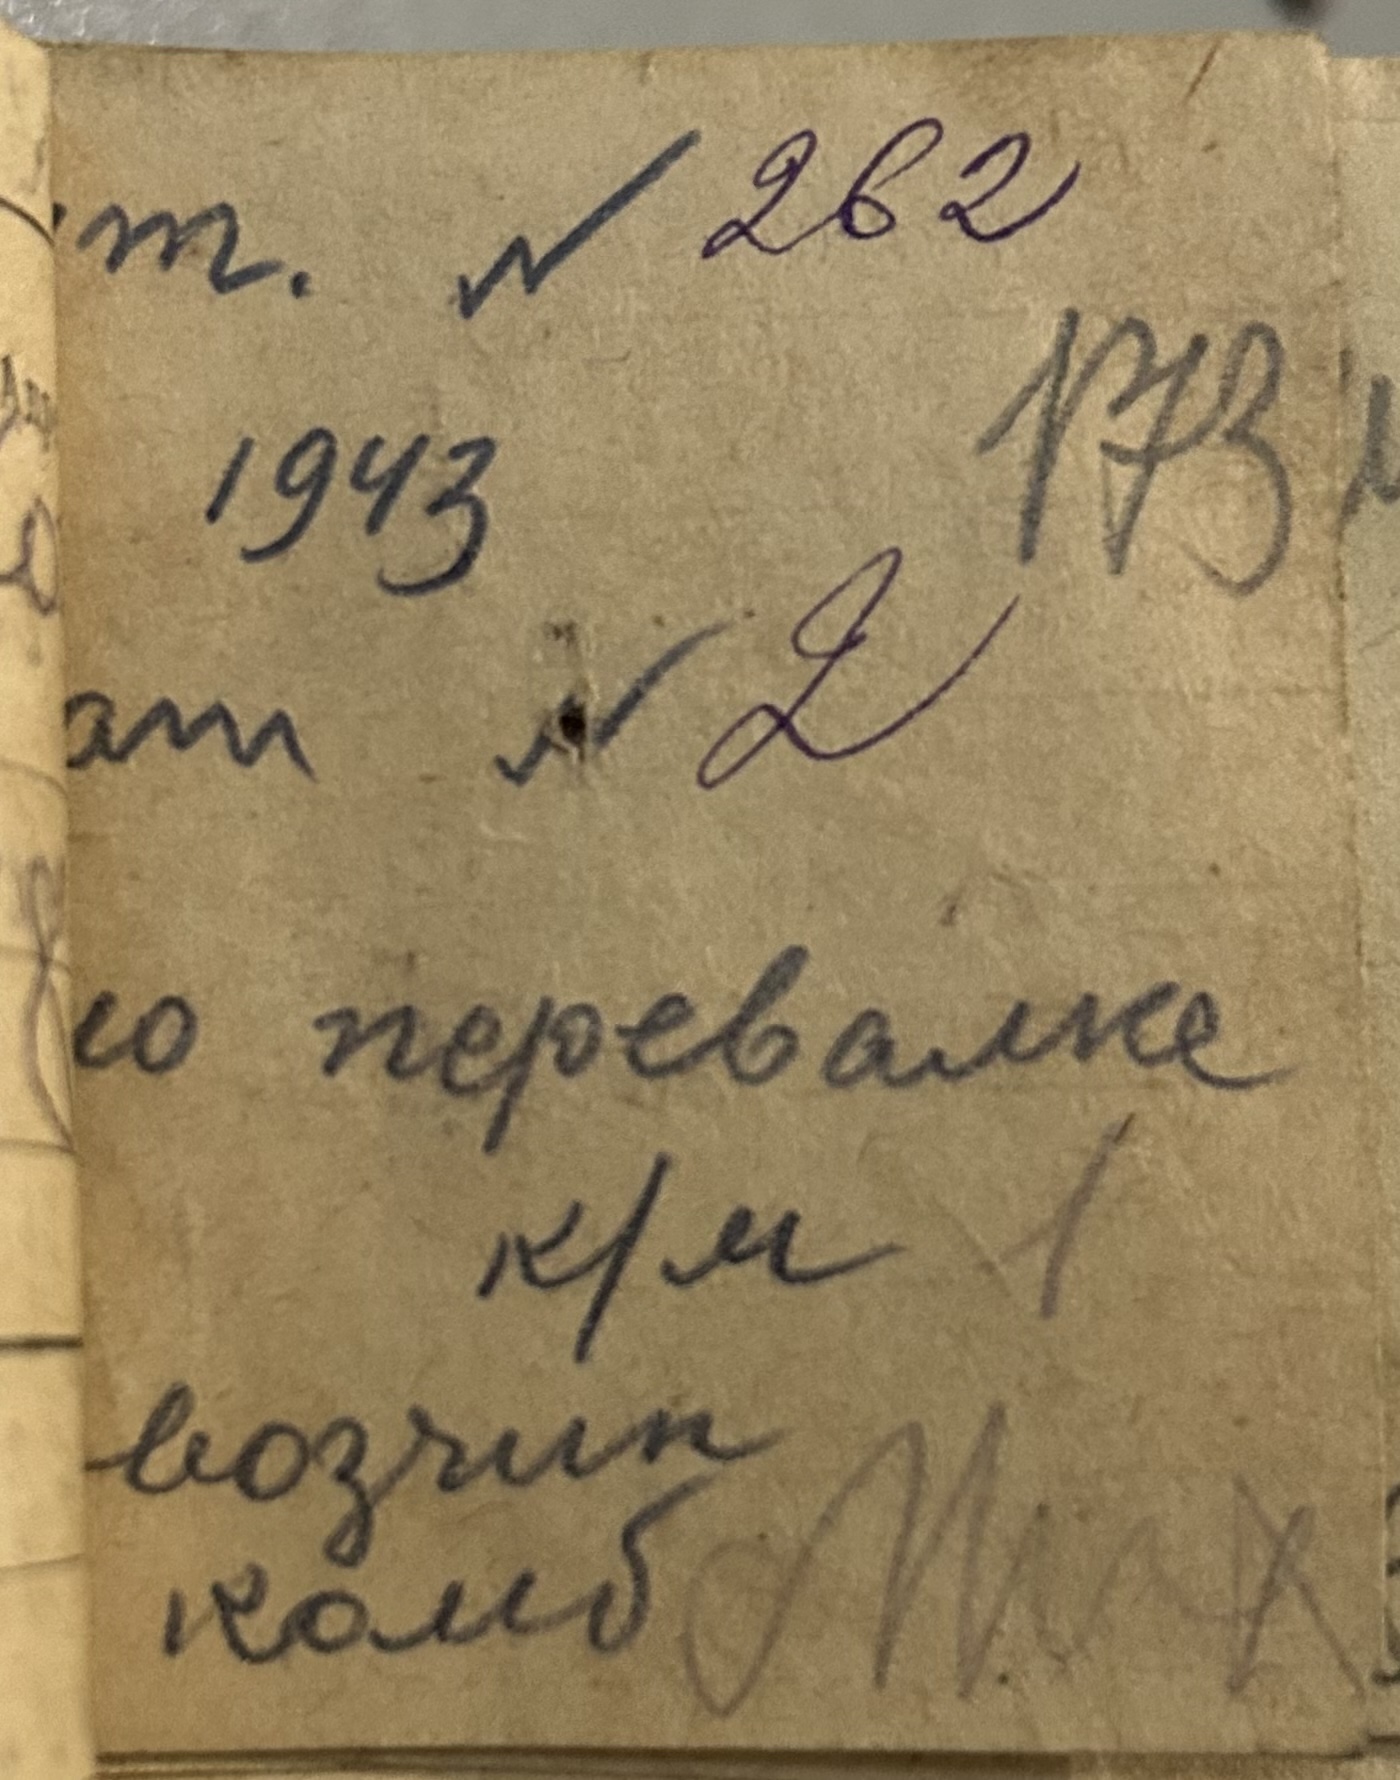 т. № 262
173
1943
ат № 2
ю перевалке
к/м
возчик
комб